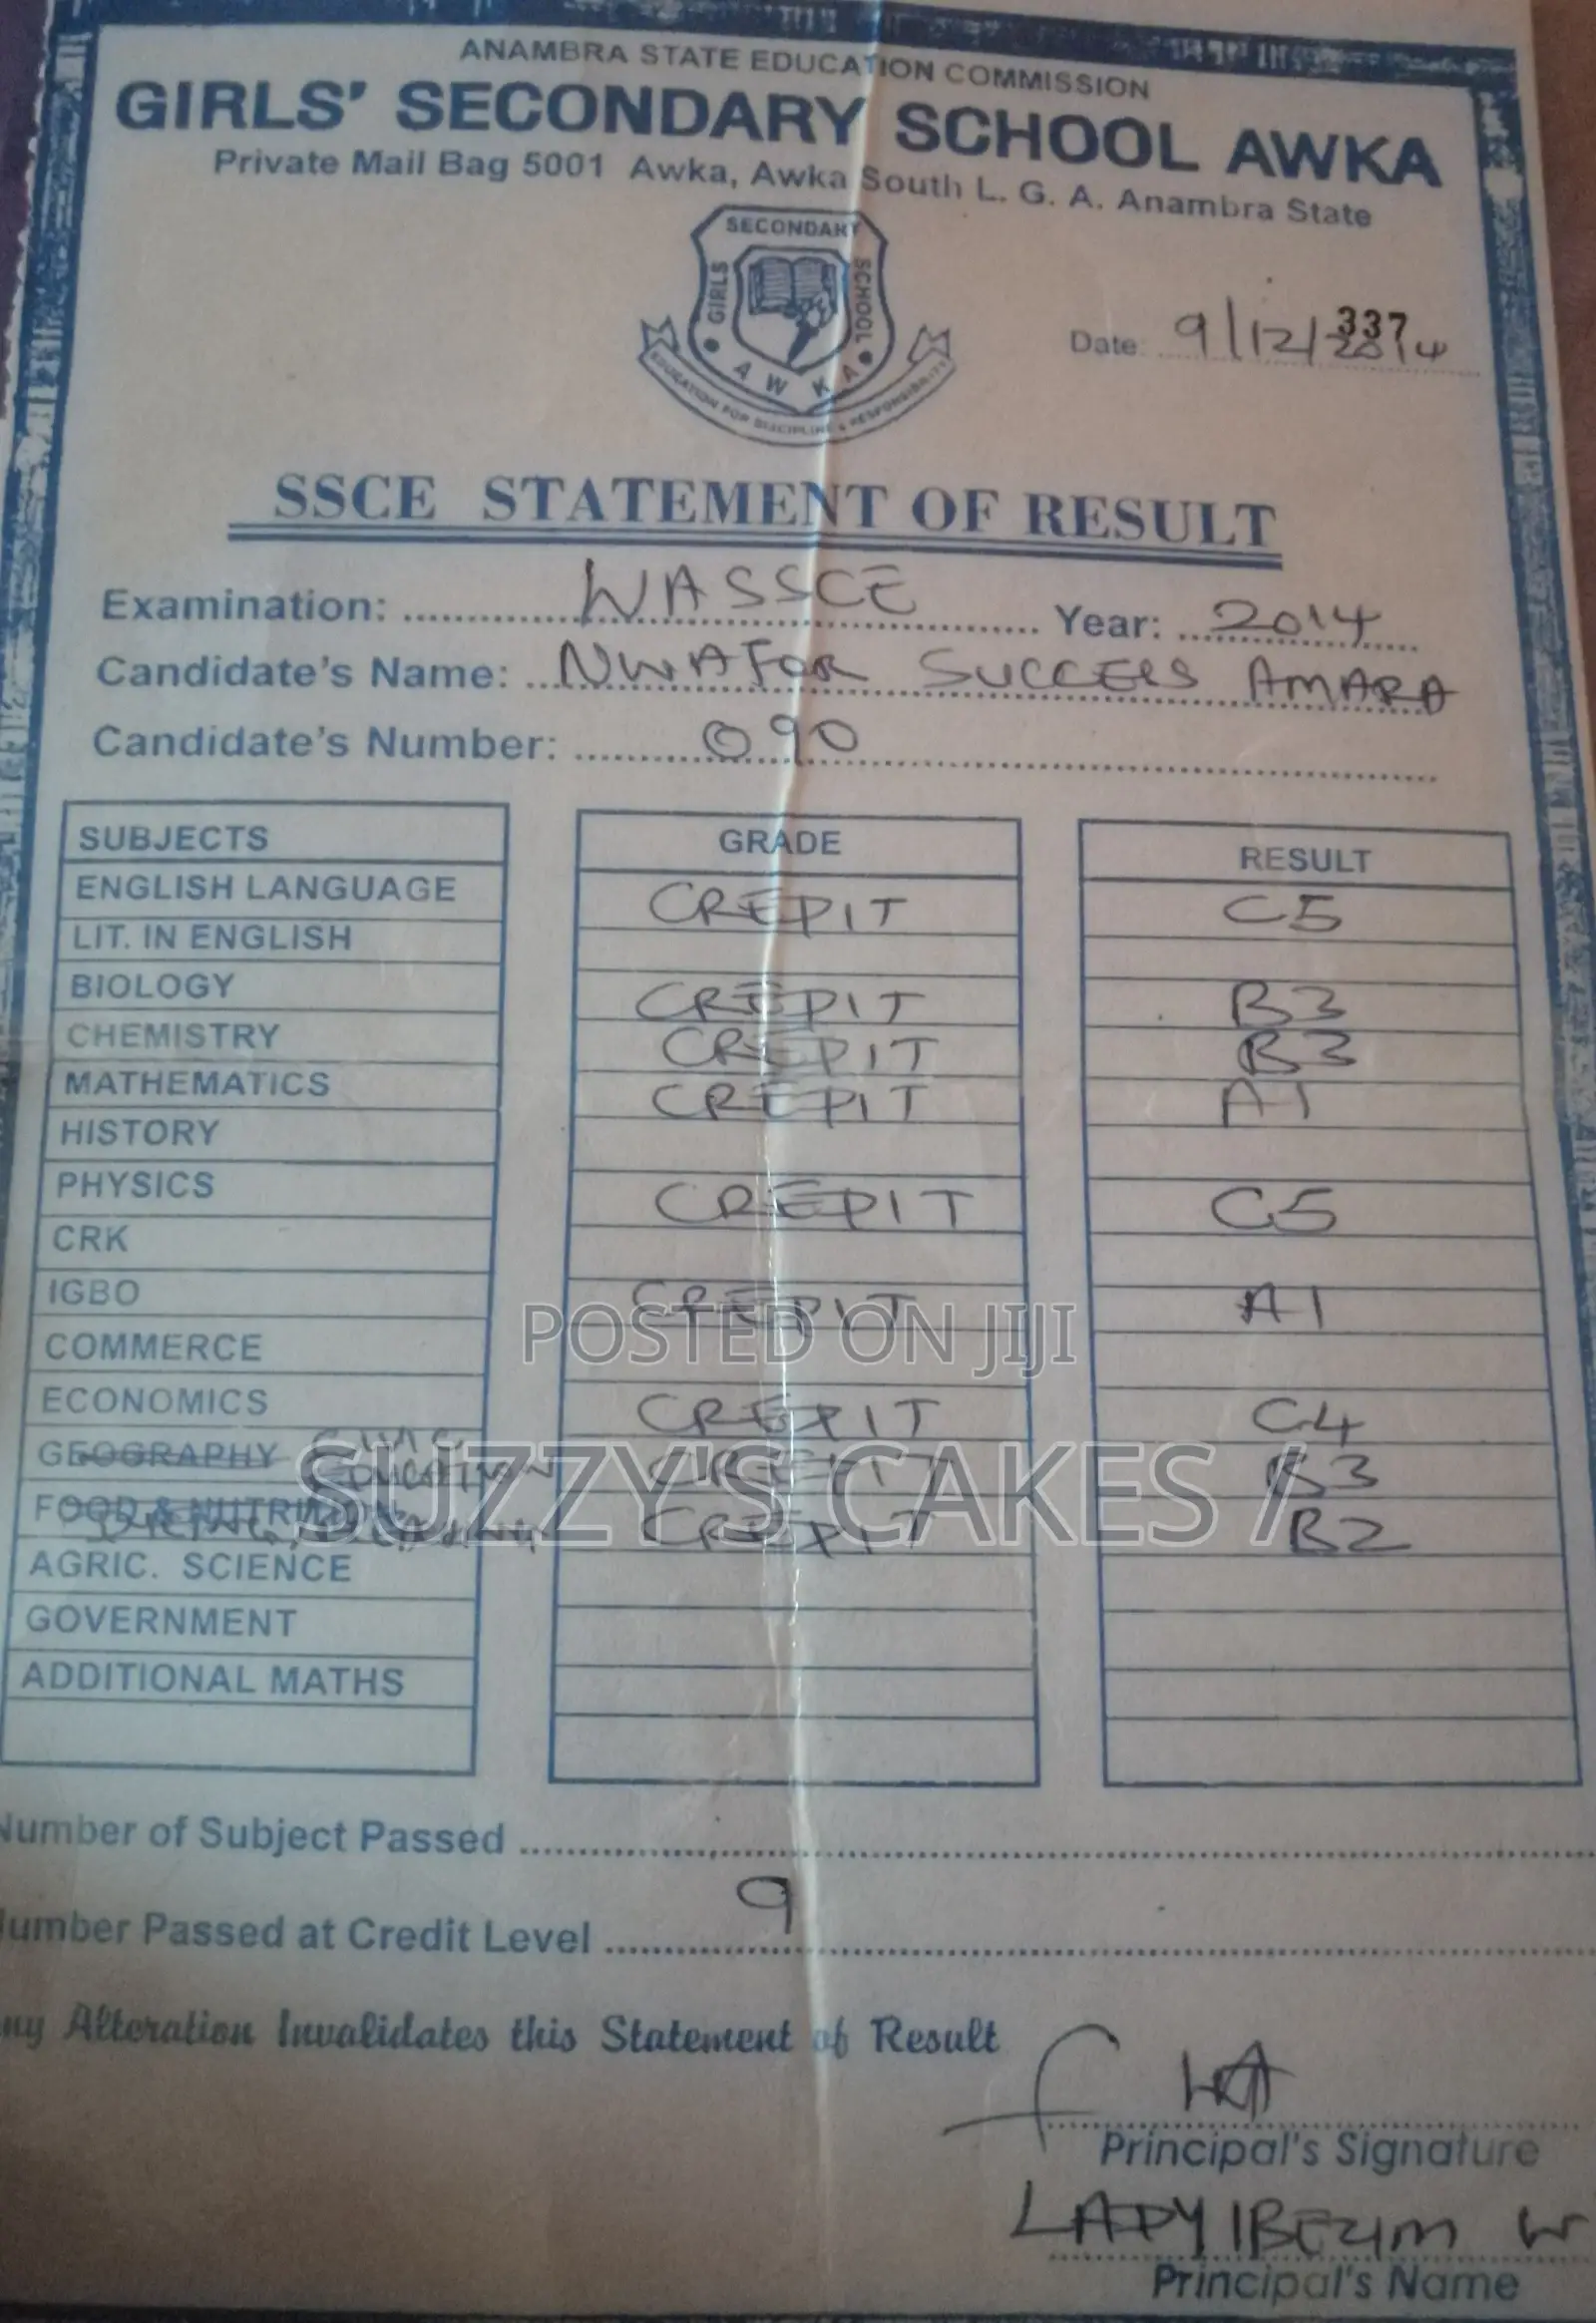 ANAMBRA STATE EDUCATION COMMISSION
GIRLS' SECONDARY SCHOOL AWKA
Private Mail Bag 5001 Awka, Awka South L. G. A. Anambra State
GIRLS SECONDARY SCHOOL
AWKA
EDUCATION FOR DISCIPLINE & RESPONSIBILITY
337
Date: 9/12/2014
SSCE STATEMENT OF RESULT
Examination: WASSCE Year: 2014
Candidate's Name: NWAFOR SUCCESS AMARA
Candidate's Number: 090
SUBJECTS GRADE RESULT
ENGLISH LANGUAGE CREDIT C5
LIT. IN ENGLISH
BIOLOGY CREDIT B3
CHEMISTRY CREDIT B3
MATHEMATICS CREDIT A1
HISTORY
PHYSICS CREDIT C5
CRK
IGBO CREDIT A1
POSTED ON JIJI
COMMERCE
ECONOMICS CREDIT C4
GEOGRAPHY CIVIC EDUCATION CREDIT B3
SUZZY'S CAKES /
FOOD & NUTRITION CREDIT B2
AGRIC. SCIENCE
GOVERNMENT
ADDITIONAL MATHS
Number of Subject Passed
Number Passed at Credit Level 9
ny Alteration Invalidates this Statement of Result
Principal's Signature
LADY
Principal's Name